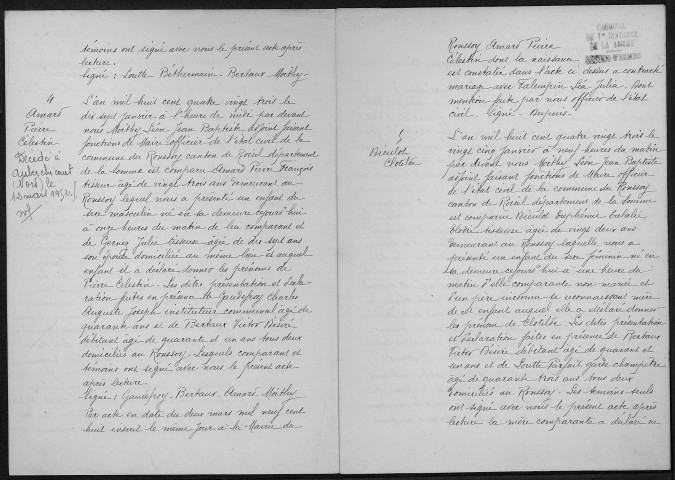 témoins ont signé avec nous le présent acte après
lecture.
Signé : Soutte Béthermain - Bertaux - Moithy -
4
Amard
Pierre
Célestin
Décédé à
Auberchicourt
(Nord) le
12 mars 1952.
L'an mil huit cent quatre vingt trois le
dix sept janvier à l'heure de midi par devant
nous Moithy Léon Jean Baptiste adjoint faisant
fonctions de Maire officier de l'état civil de la
commune du Ronssoy canton de Roisel département
de la Somme est comparu Amard Pierre François
tisseur âgé de vingt trois ans demeurant au
Ronssoy lequel nous a présenté un enfant du
sexe masculin né en sa demeure cejourd'hui
à onze heures du matin de lui comparant et
de Gernez Julie tisseuse âgée de dix sept ans
son épouse domiciliée au même lieu et auquel
enfant il a déclaré donner les prénoms de
Pierre Célestin. Les dites présentation et décla-
ration faites en présence de Gaudefroy Charles
Auguste Joseph instituteur communal âgé de
quarante ans et de Bertaux Victor Désiré
débitant âgé de quarante et un ans tous deux
domiciliés au Ronssoy. Lesquels comparant et
témoins ont signé avec nous le présent acte
après lecture.
Signé : Gaudefroy - Bertaux. Amard Moithy
Par acte en date du deux mars mil neuf cent
huit inscrit le même jour à la Mairie du
Ronssoy Amard Pierre
Célestin dont la naissance
est constatée dans l'acte ci dessus a contracté
mariage avec Falempin Léa Julia. Dont
mention faite par nous officier de l'état
civil. Signé - Dupuis -
TRIBUNAL
DE 1re INSTANCE
DE LA SOMME
5
Bieulot
Clotilde
L'an mil huit cent quatre vingt trois le
vingt cinq janvier à neuf heures du matin
par devant nous Moithy Léon Jean Baptiste
adjoint faisant fonctions de Maire officier
de l'état civil de la commune du Ronssoy
canton de Roisel département de la Somme
est comparue Bieulot Euphémie Natalie
Clotilde tisseuse âgée de vingt deux ans
demeurant au Ronssoy laquelle nous a
présenté un enfant du sexe féminin né en
sa demeure cejourd'hui à une heure du
matin d'elle comparante non mariée et
d'un père inconnu se reconnaissant mère
de cet enfant auquel elle a déclaré donner
le prénom de Clotilde. Les dites présentation
et déclaration faites en présence de Bertaux
Victor Désiré débitant âgé de quarante et
un ans et de Soutte Parfait garde champêtre
âgé de quarante trois ans tous deux
domiciliés au Ronssoy. Les témoins seuls
ont signé avec nous le présent acte après
lecture la mère comparante a déclaré ne